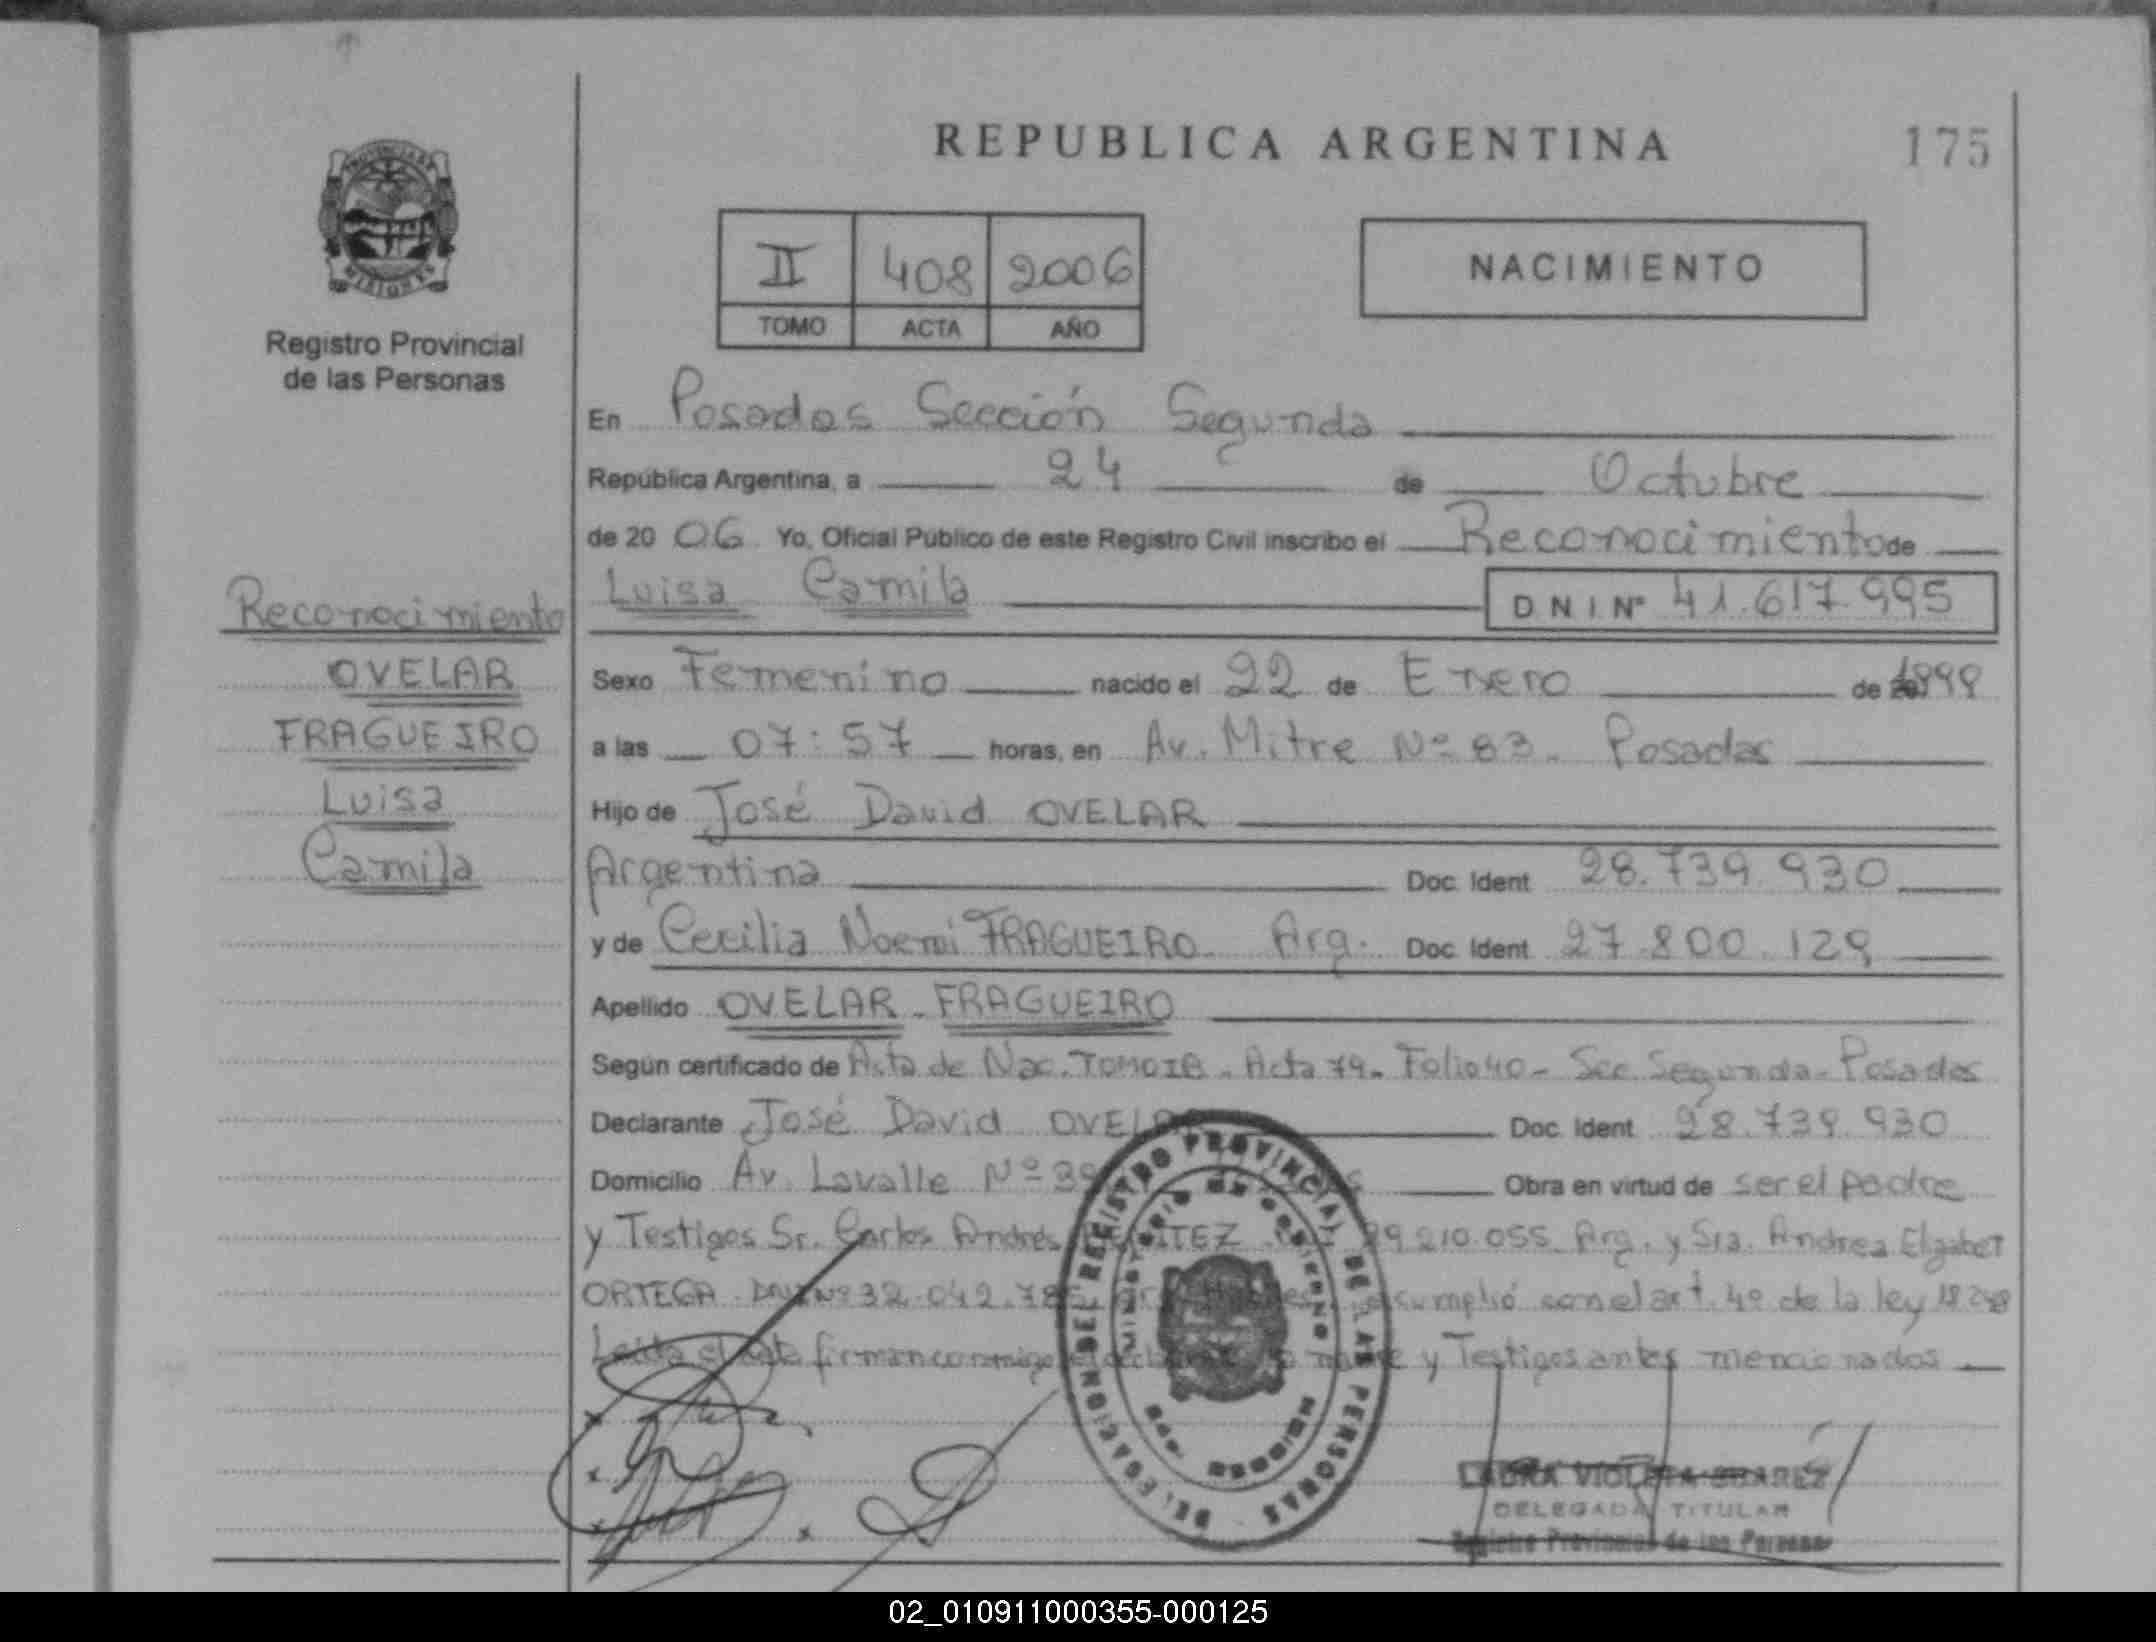 REPUBLICA ARGENTINA
175
PROVINCIA DE
MISIONES
Registro Provincial
de las Personas
II 408 2006
TOMO ACTA AÑO
NACIMIENTO
En Posadas Sección Segunda
República Argentina, a 24 de Octubre
de 2006 Yo, Oficial Público de este Registro Civil inscribo el Reconocimiento de
Luisa Camila D N I Nº 41.617.995
Reconocimiento
OVELAR
FRAGUEIRO
Luisa
Camila
Sexo Femenino nacido el 22 de Enero de 1999
a las 07:57 horas, en Av. Mitre Nº 83. Posadas
Hijo de José David OVELAR
Argentina Doc. Ident 28.739.930
y de Cecilia Noemi FRAGUEIRO Arg. Doc. Ident 27.800.129
Apellido OVELAR - FRAGUEIRO
Según certificado de Acta de Nac. TOMO - Acta 79 - Folio 40 - Sec. Segunda - Posadas
Declarante José David OVELAR Doc. Ident 28.739.930
Domicilio Av. Lavalle Nº Obra en virtud de ser el padre
y Testigos Sr. Carlos Andrés 29.210.055 Arg. y Sra. Andrea Elizabet
ORTEGA DNI Nº 32.042.78 se cumplió con el art. 4º de la ley 18248
Leida el acta firman conmigo el y Testigos antes mencionados
DELEGACION DEL REGISTRO PROVINCIAL DE LAS PERSONAS
MINISTERIO DE GOBIERNO
MISIONES
LAURA VIOLETA SUAREZ
DELEGADA TITULAR
Registro Provincial de las Personas
02_010911000355-000125